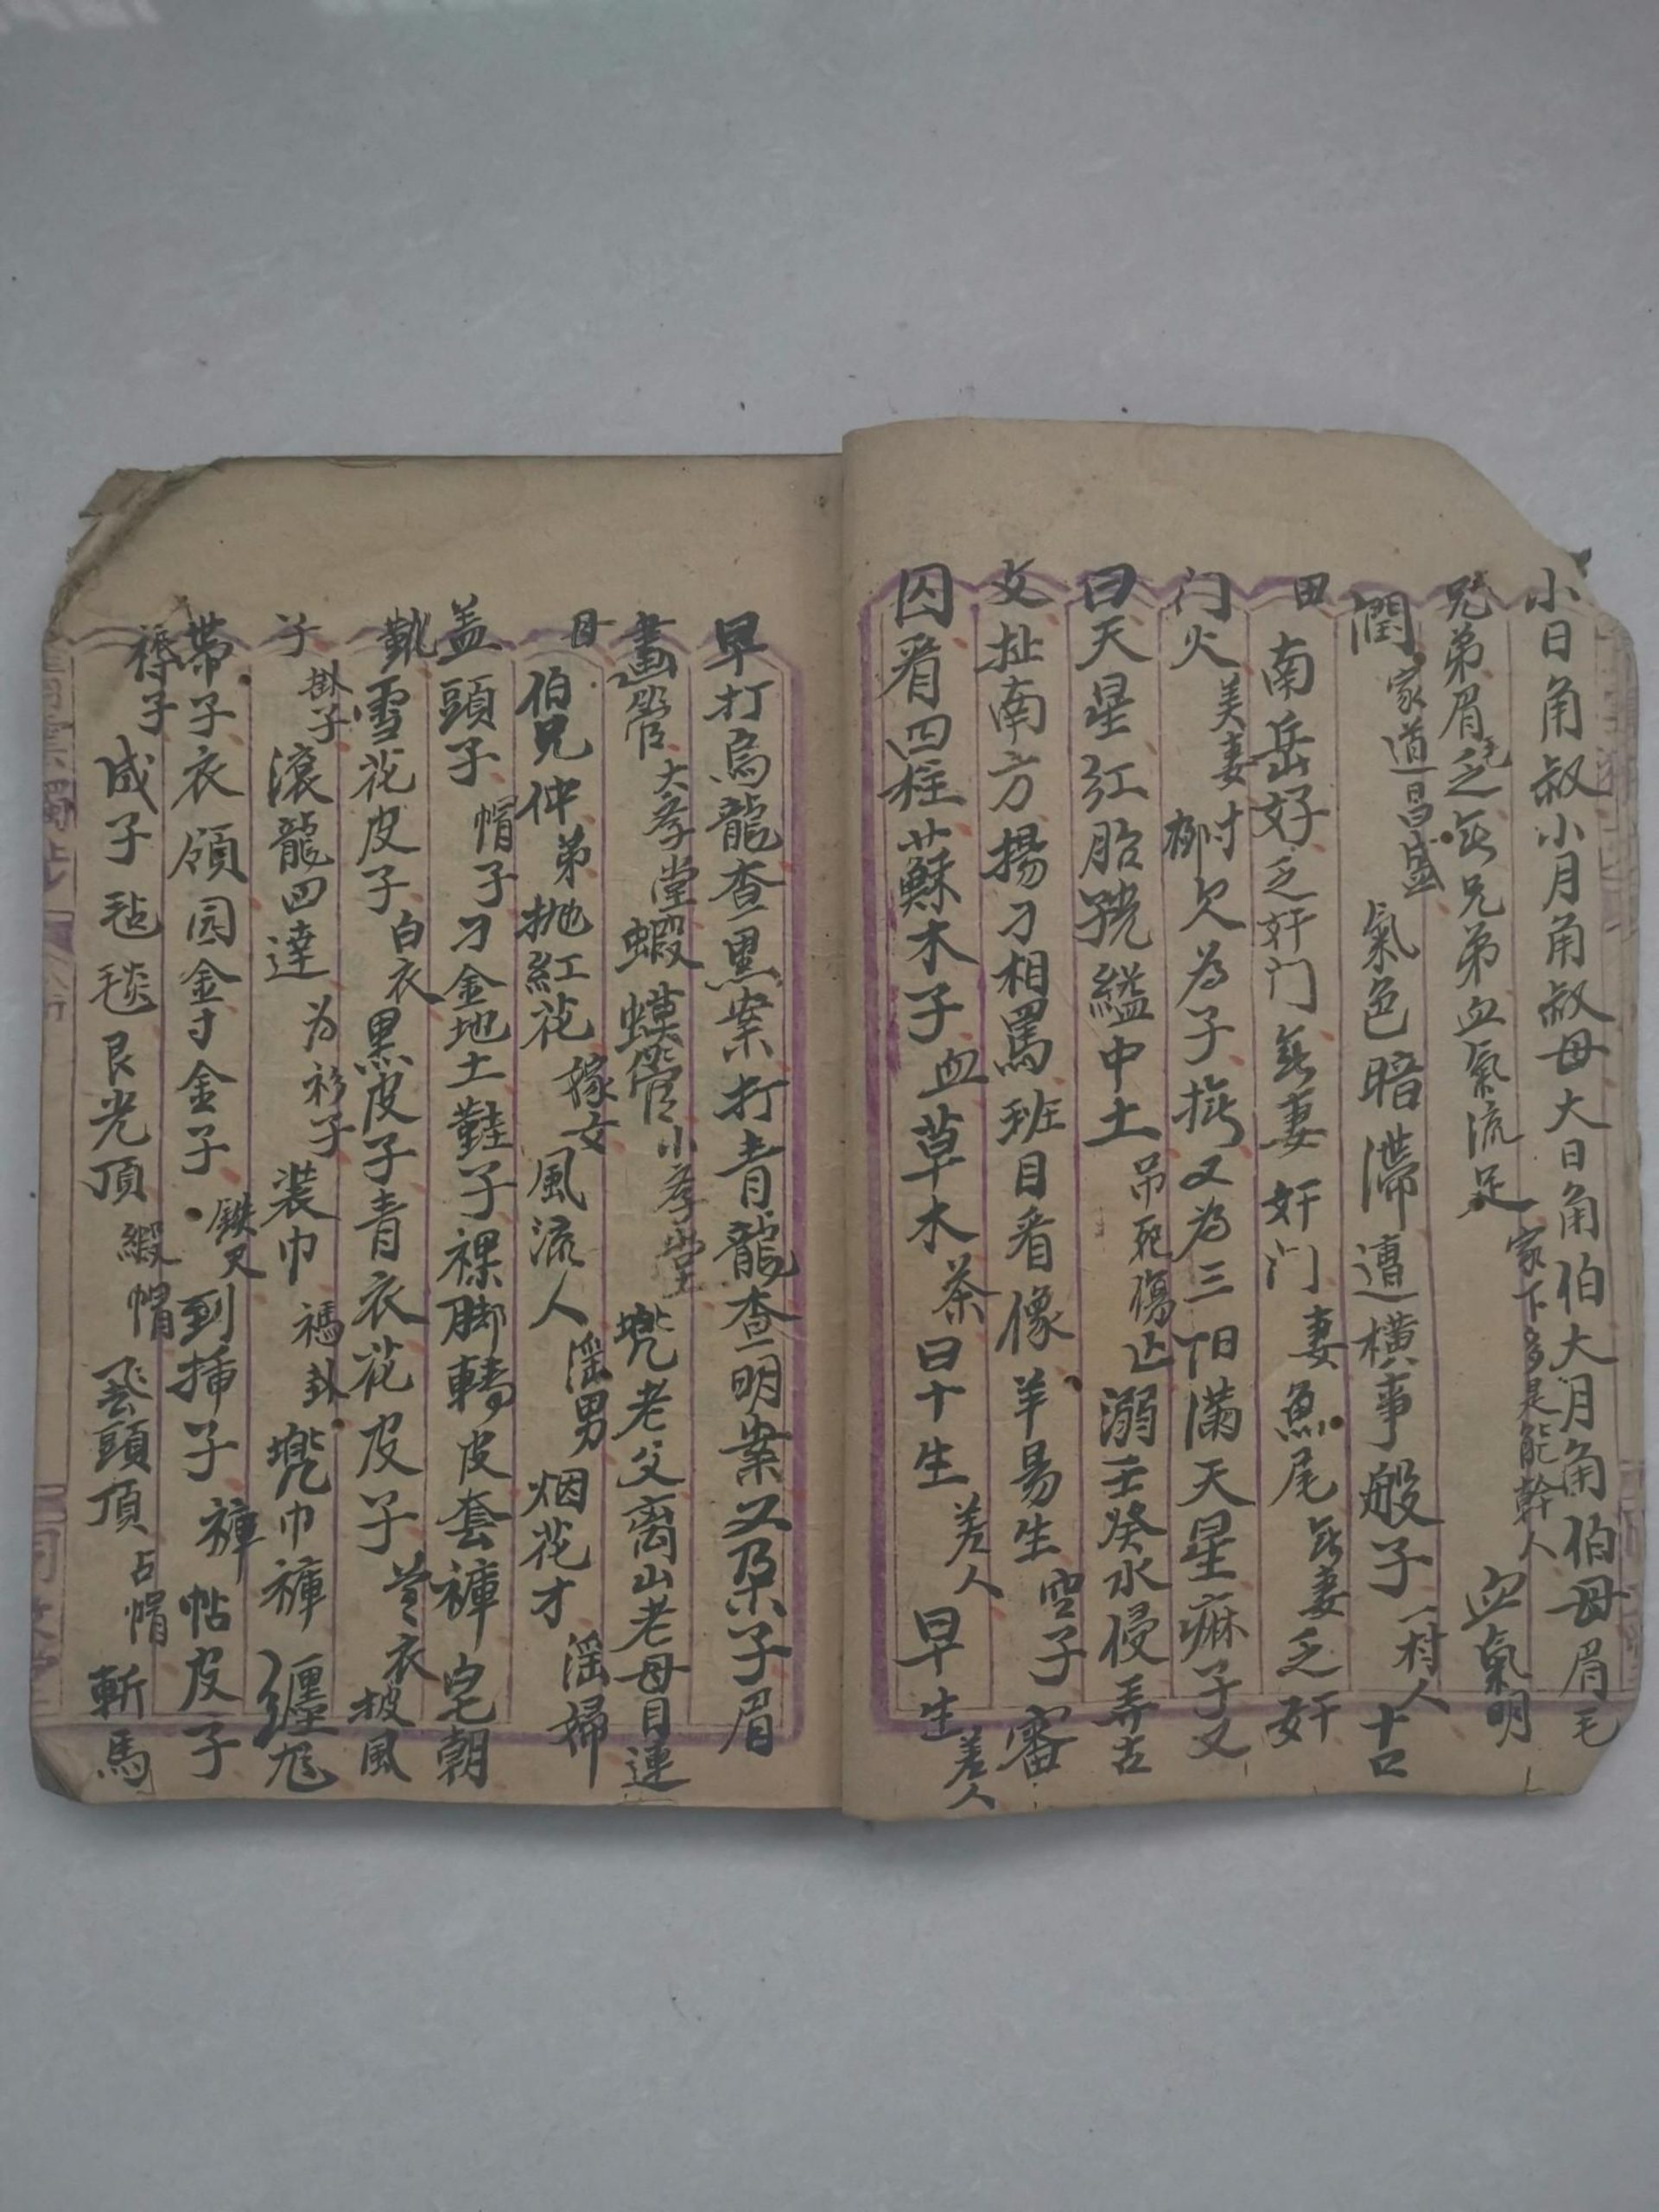 小日角叔小月角叔母大日角伯大月角伯母眉毛
兄弟眉毛乏無兄弟血氣流足家下多是能幹人血氣明
潤家道昌盛氣色暗滯遭橫事般子一村人十口
田南岳好乏奸门無妻奸门妻魚尾無妻乏奸
门火美妻柳村欠為子捲又為三阳滿天星痳子又
曰天星红胎繞縊中土吊死傷亡溺壬癸水侵弄古
文扯南方揚刁相罵班目看像羊易生空子審
囚看四柱蘇木子血草木茶曰十生差人早生差人
早打烏龍查黑案打青龍查明案又朵子眉
畫管大孝堂蝦蟆管小孝堂兜老父离山老母目連
母伯兄仲弟拋紅花嫁女風流人淫男烟花才淫婦
盖頭子帽子刁金地土鞋子裸脚轎皮套褲皂朝
靴雪花皮子白衣黑皮子青衣花皮子花衣披風
子掛子滾龍四達为衫子装巾褂兜巾褲纏
帶子衣領园金寸金子鉄尺到插子褲帖皮子
褥子成子毡毯艮光頂緞帽頭頂占帽斬馬